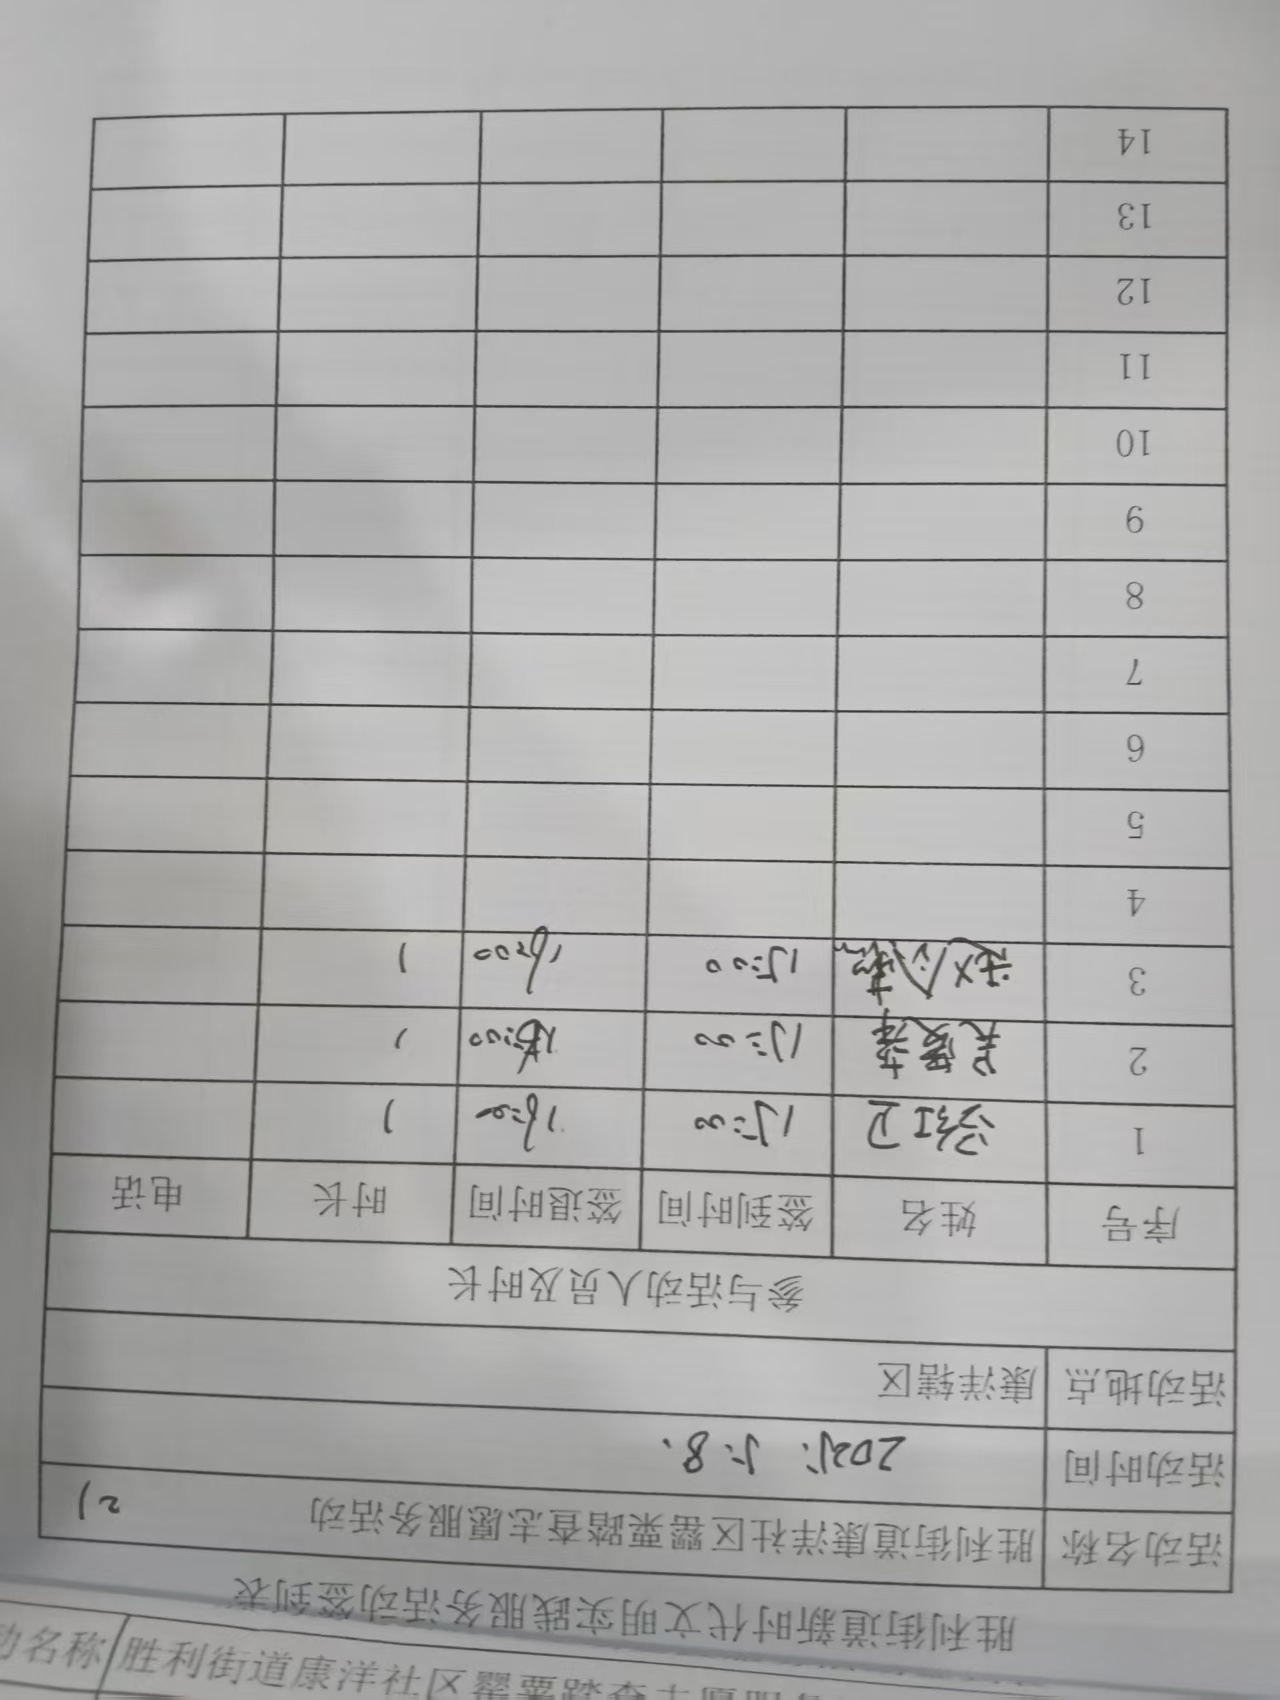 胜利街道新时代文明实践服务活动签到表
活动名称 胜利街道康洋社区罂粟踏查志愿服务活动 21
活动时间 2025. 5. 8.
活动地点 康洋辖区
参与活动人员及时长
序号 姓名 签到时间 签退时间 时长 电话
1 红卫 15:00 16:00 1
2 15:00 16:00 1
3 赵 15:00 16:00 1
4
5
6
7
8
9
10
11
12
13
14
动名称 胜利街道康洋社区罂粟踏查志愿服务